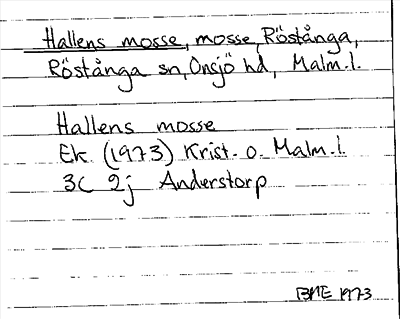 Hallens mosse, mosse, Röstånga,
Röstånga sn, Onsjö hd, Malm.l.
Hallens mosse
Ek. (1973) Krist. o. Malm.l.
3C 2j Anderstorp
1973